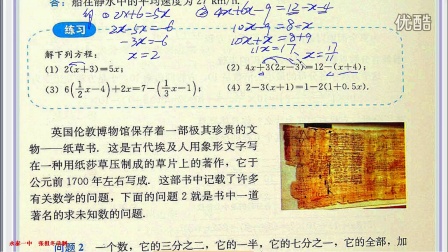 答：船在静水中的平均速度为 27 km/h.
(1) 2x+6=5x
2x-5x=-6
-3x=-6
x=2
(2) 4x+6x-9=12-x-4
10x-9=8-x
10x+x=8+9
11x=17, x=17/11
练习
解下列方程：
(1) 2(x+3)=5x；
(2) 4x+3(2x-3)=12-(x+4)；
(3) 6(1/2x-4)+2x=7-(1/3x-1)；
(4) 2-3(x+1)=1-2(1+0.5x).
英国伦敦博物馆保存着一部极其珍贵的文
物——纸草书. 这是古代埃及人用象形文字写
在一种用纸莎草压制成的草片上的著作，它于
公元前 1700 年左右写成. 这部书中记载了许多
有关数学的问题，下面的问题 2 就是书中一道
著名的求未知数的问题.
问题 2 一个数，它的三分之二，它的一半，它的七分之一，它的全部，加